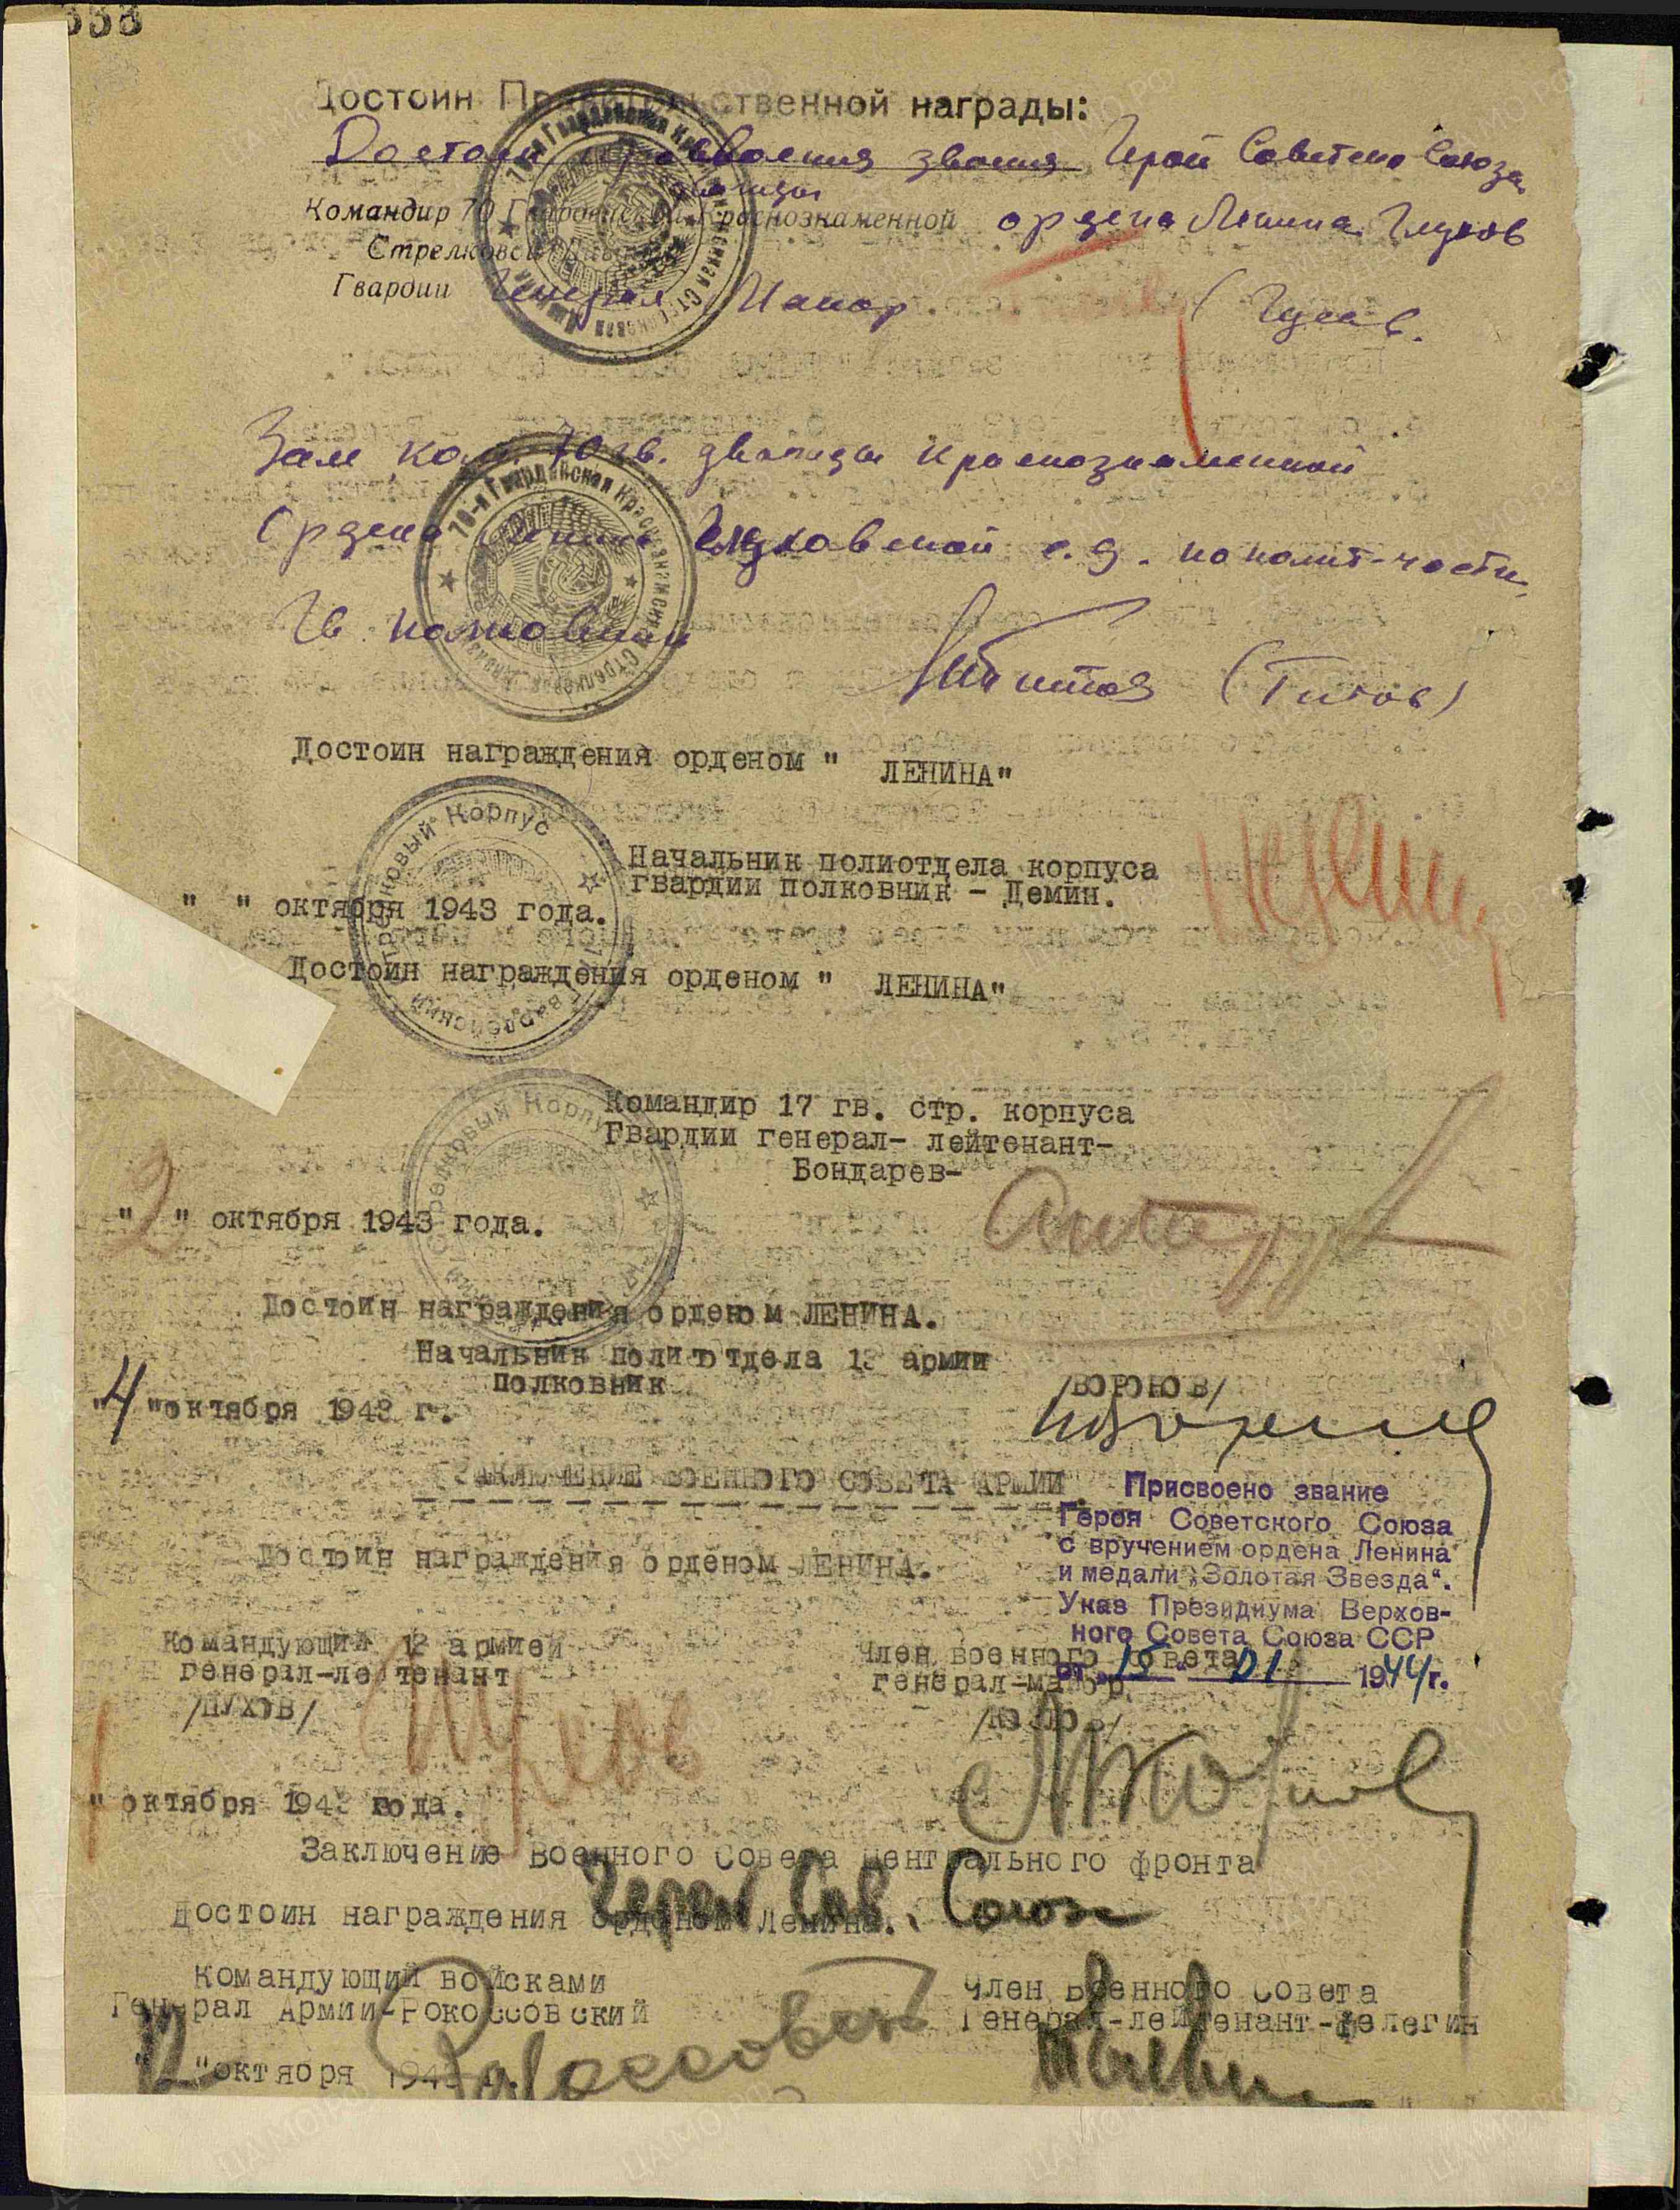 333
Достоин Правительственной награды:
Достоин присвоения звания Герой Советско Союза
дважды
Командир 70 Гвардейской Краснознаменной ордена Ленина Глухов
Стрелковой Дивизии
Гвардии Генерал Майор (Гусев.
Зам ком. 70 гв. дважды Краснознаменной
Ордена Ленина Глуховской с.д. по полит-части
Гв. полковник (Титов)
Достоин награждения орденом " ЛЕНИНА"
Начальник полиотдела корпуса
гвардии полковник - Демин.
" " октября 1943 года.
Достоин награждения орденом " ЛЕНИНА"
Командир 17 гв. стр. корпуса
Гвардии генерал- лейтенант-
Бондарев-
"2" октября 1943 года.
Достоин награждения орденом ЛЕНИНА.
Начальник политотдела 13 армии
полковник
/ВОРОНОВ/
"4" октября 1943 г.
ЗАКЛЮЧЕНИЕ ВОЕННОГО СОВЕТА АРМИИ.
Присвоено звание
Героя Советского Союза
с вручением ордена Ленина
и медали „Золотая Звезда".
Указ Президиума Верхов-
ного Совета Союза ССР
от „15" 01 1944 г.
Достоин награждения орденом ЛЕНИНА.
Командующий 13 армией
генерал-лейтенант
/ПУХОВ/
Член военного совета
генерал-майор
/КОЗЛОВ/
" октября 1943 года.
Заключение Военного Совета Центрального фронта
Героя Сов. Союза
Достоин награждения орденом Ленина.
Командующий войсками
Генерал Армии-Рокоссовский
Член Военного Совета
Генерал-лейтенант-Телегин
"12" октября 1943 г.
70-я Гвардейская Краснознаменная Стрелковая Дивизия
70-я Гвардейская Краснознаменская Стрелковая Дивизия
Гвардейский Стрелковый Корпус
Стрелковый Корпус
ЦАМО РФ